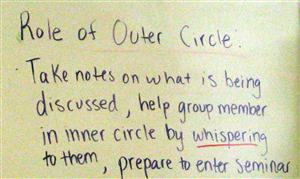 Role of Outer Circle:
· Take notes on what is being
discussed, help group member
in inner circle by whispering
to them, prepare to enter seminar